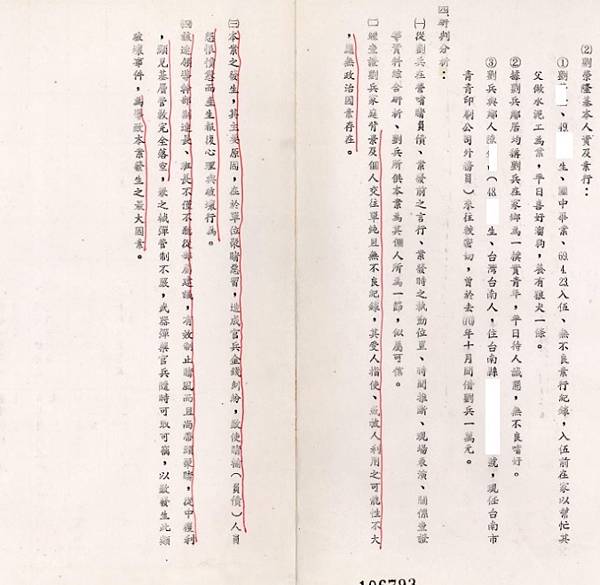 (2)劉榮隆基本人資及素行：
①劉　、48.　生、國中畢業、69.4.23入伍、無不良素行紀錄，入伍前在家以幫忙其
父做水泥工為業，平日喜好溜狗，養有狼犬一條。
②據劉兵鄰居均稱劉兵在家鄉為一樸實青年，平日待人誠懇，無不良嗜好。
③劉兵與鄰人陳　(48.　生、台灣台南人，住台南縣　號，現任台南市
青青印刷公司外務員)來往較密切，曾於去年十月間借劉兵一萬元。
四研判分析：
(一)從劉兵在營嗜賭負債、案發前之言行、案發時之執勤位置、時間推斷、現場表演、關係查證
等資料綜合研析、劉兵所供本案為其個人所為一節，似屬可信。
(二)經查證劉兵家庭背景及個人交往單純且無不良紀錄，其受人指使、或被人利用之可能性不大
，應無政治因素存在。
(三)本案之發生，其主要原因，在於單位聚賭惡習，造成官兵金錢糾紛，致使賭輸(負債)人員
怨恨憤怒而產生報復心理與破壞行為。
(四)該連領導幹部副連長、班長不僅不聽從部屬建議，有效制止賭風而且尚帶頭聚賭，從中獲利
，顯見基層管教完全落空，兼之械彈管制不嚴，武器彈藥官兵隨時可取可竊，以致發生此類
破壞事件，為導致本案發生之最大因素。
106793